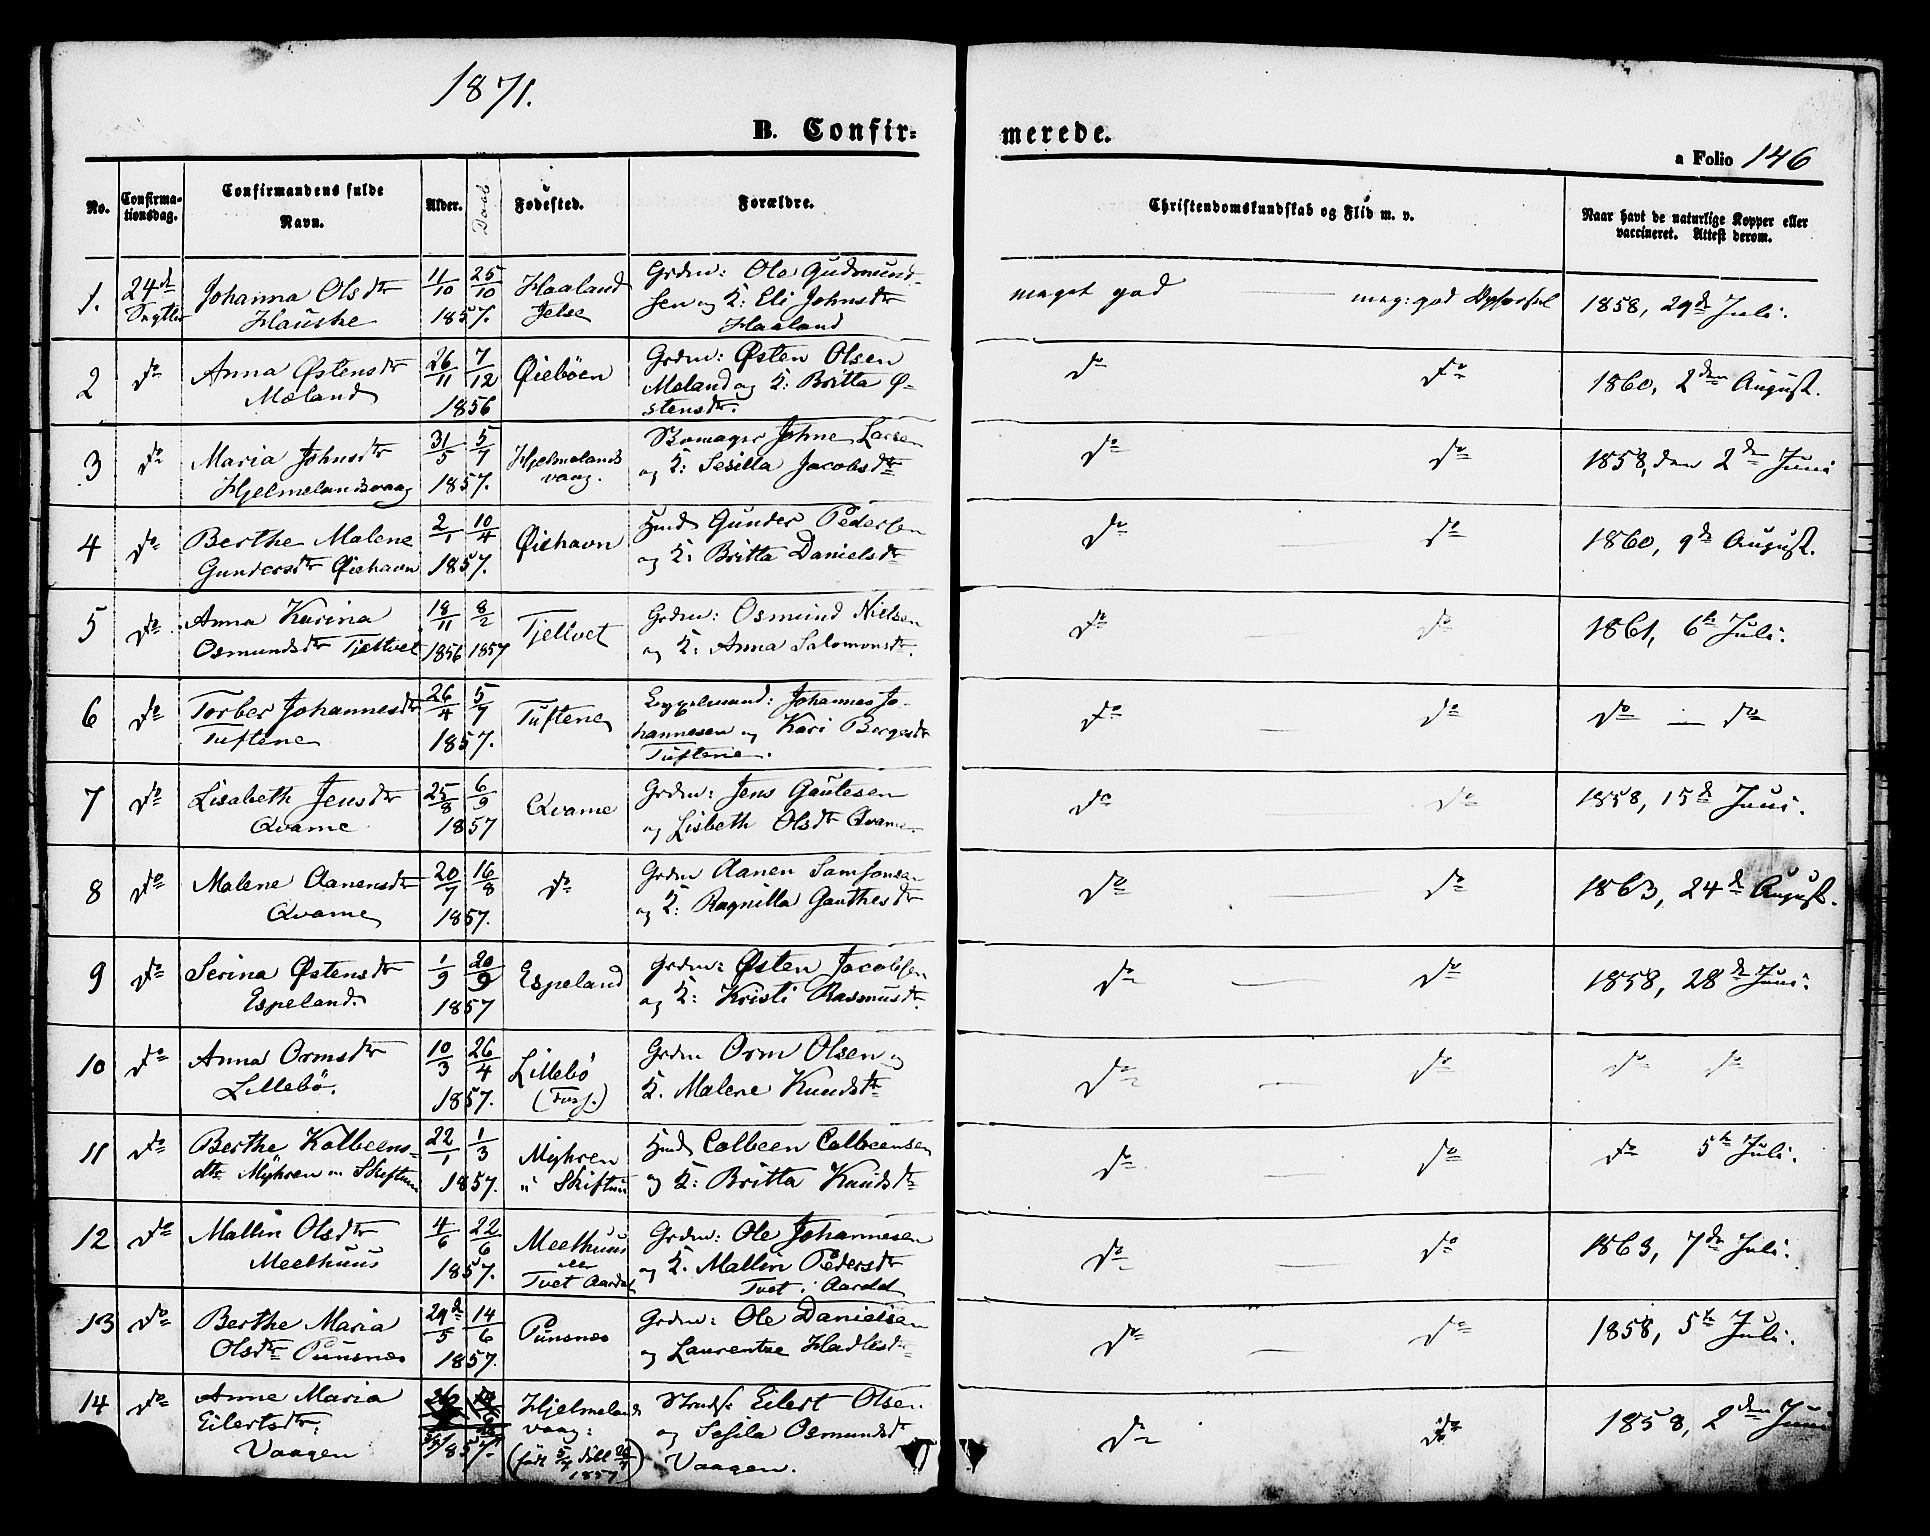 1871.
B. Confir-
merede.
a Folio 146
No.
Confirma-
tionsdag.
Confirmandens fulde
Navn.
Alder.
Daab
Fødested.
Forældre.
Christendomskundskab og Flid m. v.
Naar havt de naturlige Kopper eller
vaccineret. Attest derom.
1. 24de Johanna Olsdtr 11/10 25/10 Haaland Grdm: Ole Gudmund-
Hauske 1857. Jelse sen og K: Eli Johnsdtr
Haaland
meget god — meg: god Opførsel 1858, 29de Juli.
2 do Anna Østensdtr 26/11 7/12 Øiebøen Grdm: Østen Olsen
Mæland 1856 Mæland og K: Britta Ø-
stensdtr.
do do 1860, 2den August.
3 do Maria Johnsdtr 31/5 5/7 Hjelmelands Johne Larsen
Hjelmelandsvaag 1857. vaag. og K: Sesilla Jacobsdtr
do do 1858, den 2den Juni
4 do Berthe Malene 2/1 10/4 Øiehavn Gunder Pedersen
Gundersdtr Øiehavn 1857. og K: Britta Danielsdtr
do — do 1860, 9de August.
5 do Anna Karina 18/11 8/2 Tjeltvet Grdm: Osmund Nielsen
Osmundsdtr Tjeltvet 1856 1857 og K: Anna Salomonsdtr.
do do 1861, 6te Juli.
6 do Torber Johannesdtr 26/4 5/7 Tuftene Johannes Jo-
Tuftene 1857. hannesen og Kari Bergesdtr
Tuftene.
do — do do — do
7 do Lisabeth Jensdtr 25/8 6/9 Qvame Grdm: Jens Gautesen
Qvame 1857 og Lisbeth Olsdtr Qvame
do — do 1858, 15de Juni.
8 do Malene Aanensdtr 20/7 16/8 do Grdm Aanen Samsonsen
Qvame 1857. og K: Ragnilla Gauthesdtr
do — do 1863, 24de August.
9 do Serina Østensdtr 1/9 20/9 Espeland Grdm: Østen Jacobsen
Espeland. 1857 og K: Kristi Rasmusdtr
do — do 1858, 28de Juni.
10 do Anna Ormsdtr 10/3 26/4 Lillebø Grdm Orm Olsen og
Lillebø. 1857. K. Malene Knudsdtr
do — do do do
11 do Berthe Kolbeens- 22/1 1/3 Myhren Colbeen Colbeensen
dtr Myhren Skiftun 1857. Skiftun og K: Britta Knudsdtr
do — do do 5te Juli.
12 do Mallin Olsdtr 4/6 22/6 Meelhuus Grdm: Ole Johannesen
Meelhuus 1857. Tvet Aardal og K. Mallin Pedersdtr
Tvet i Aardal
do — do 1863, 7de Juli.
13 do Berthe Maria 29de/5 14/6 Punsnes Grdm: Ole Danielsen
Olsdtr Punsnes 1857. og Laurentze Hadlesdtr
do — do 1858, 5te Juli.
14 do Anne Maria Hjelmelands Eilert Olsen
Eilertsdtr: 1857. vaag: og Sesila Osmundsdtr
Vaagen Vaagen.
do do 1858, 2den Juni